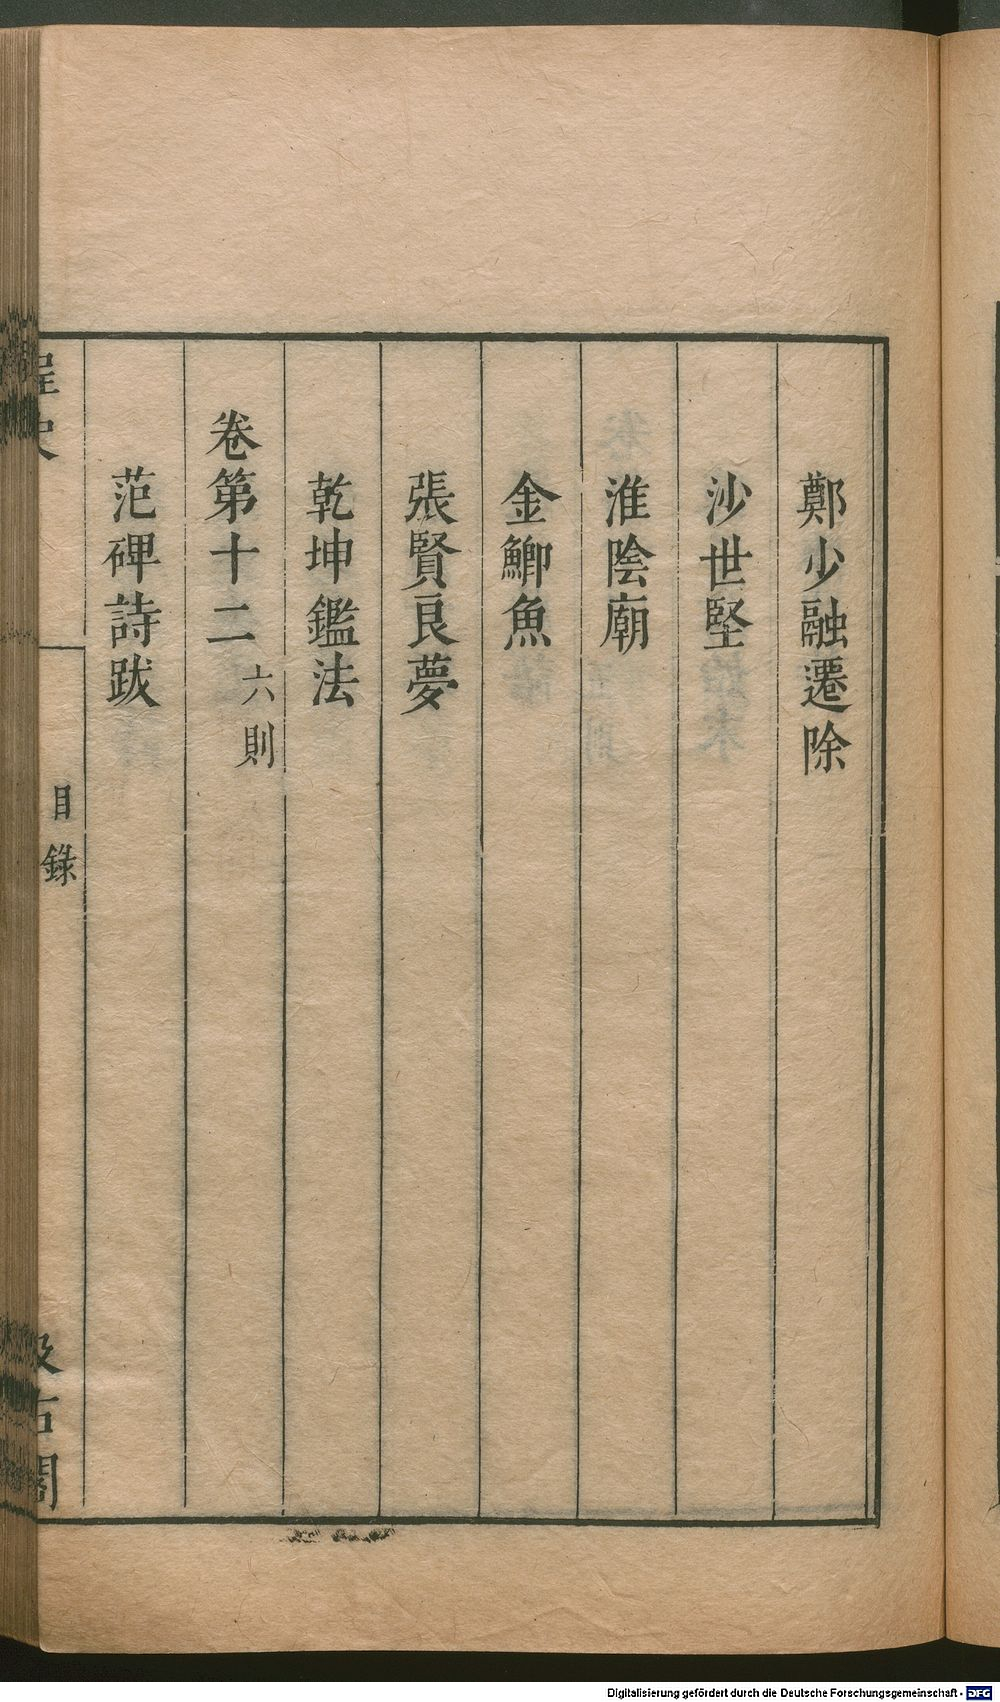 鄭少融遷除
沙世堅
淮陰廟
金鯽魚
張賢良夢
乾坤鑑法
卷第十二 六則
范碑詩跋
桯史
目錄
汲古閣
Digitalisierung gefördert durch die Deutsche Forschungsgemeinschaft - DFG